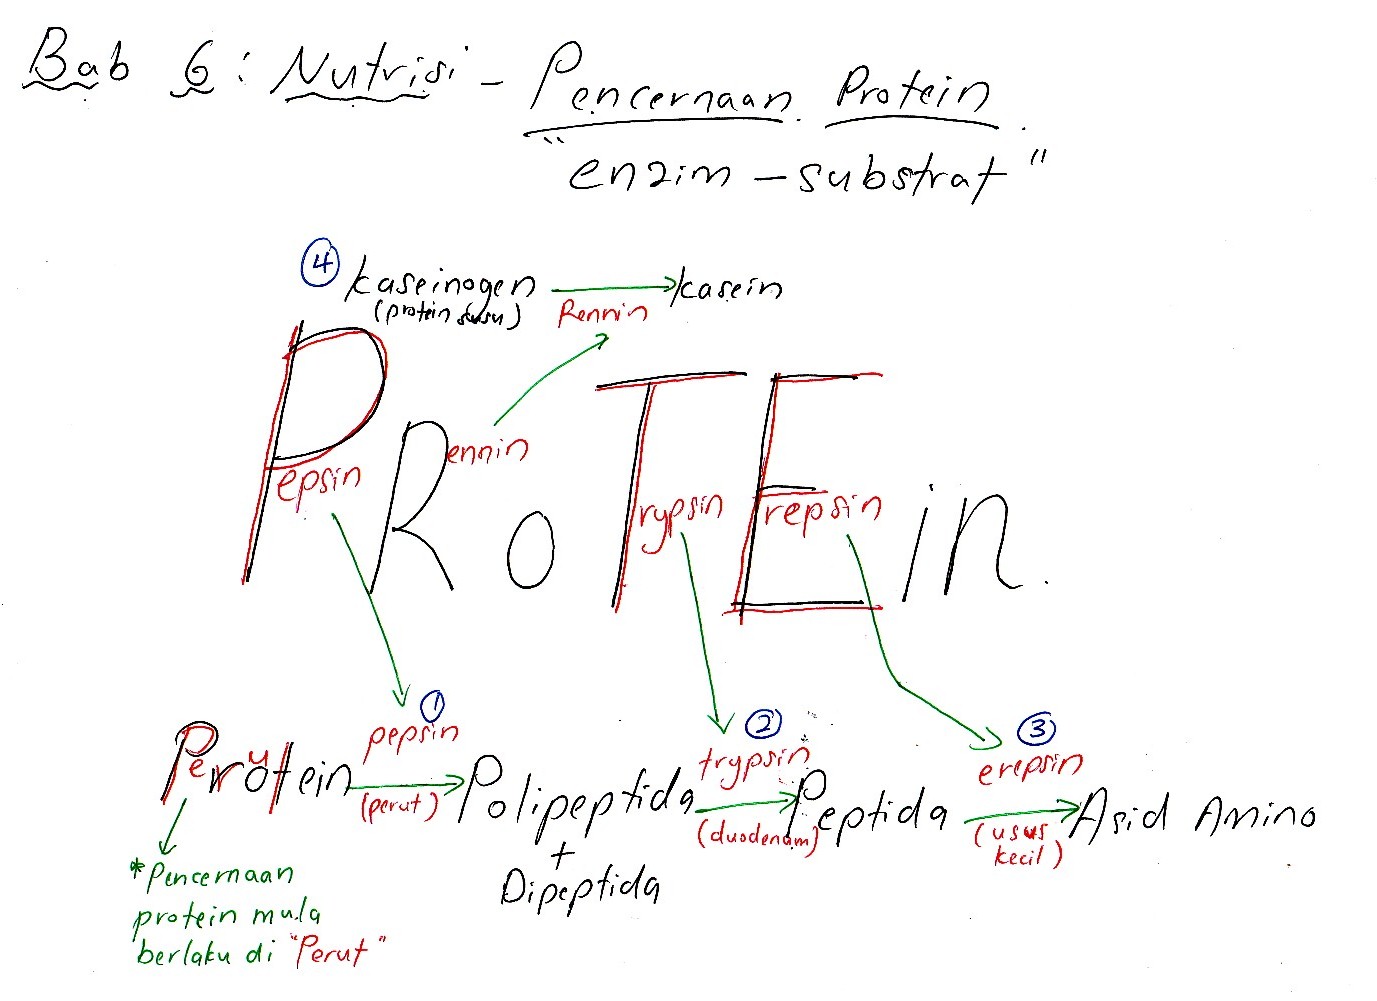 Bab 6 : Nutrisi - Pencernaan Protein
"enzim - substrat"
④ kaseinogen → kasein
(protein susu) Rennin
PRoTEin.
epsin ennin rypsin repsin
① ② ③
pepsin trypsin erepsin
Perutotein → Polipeptida → Peptida → Asid Amino
(perut) (duodenam) (usus
kecil)
+
Dipeptida
*Pencernaan
protein mula
berlaku di "Perut"